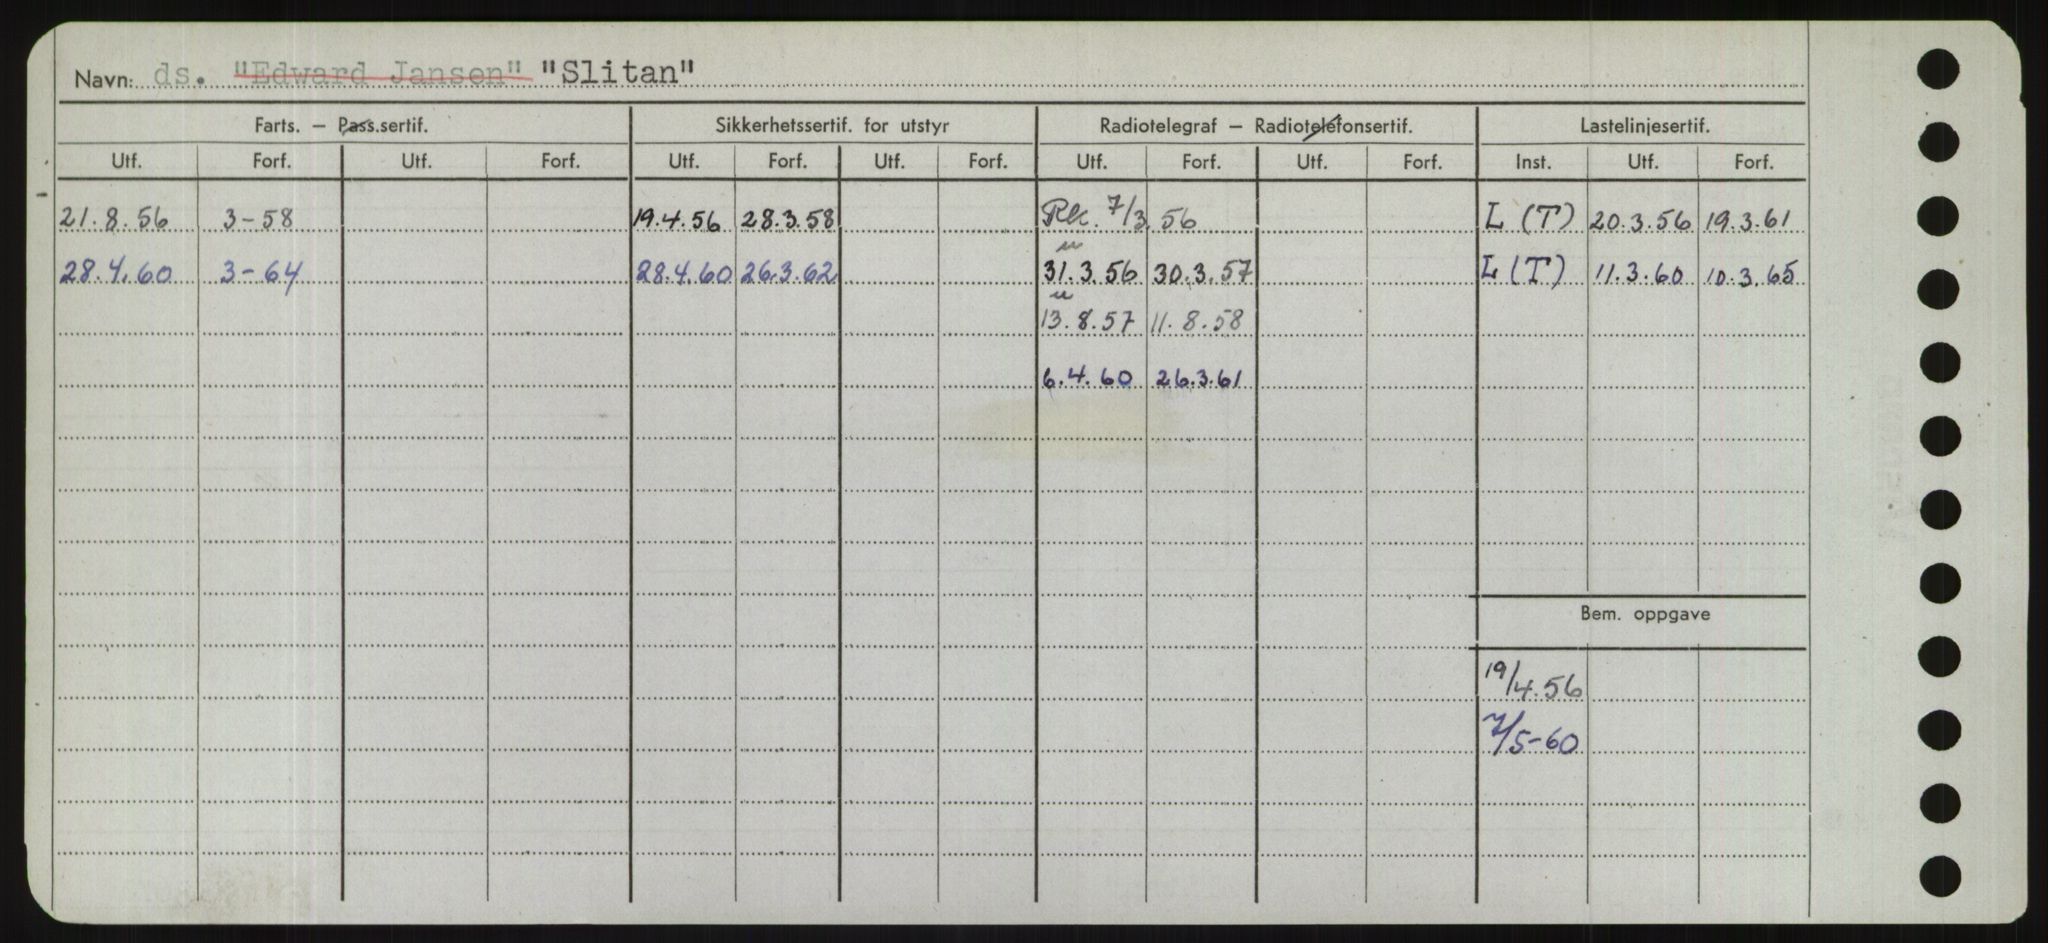 Navn: ds. "Edward Jansen" "Slitan"
Farts. – Pass.sertif. Sikkerhetssertif. for utstyr Radiotelegraf – Radiotelefonsertif. Lastelinjesertif.
Utf. Forf. Utf. Forf. Utf. Forf. Utf. Forf. Utf. Forf. Utf. Forf. Inst. Utf. Forf.
21.8.56 3-58 19.4.56 28.3.58 Rk. 7/3.56 L (T) 20.3.56 19.3.61
28.4.60 3-64 28.4.60 26.3.62 31.3.56 30.3.57 L (T) 11.3.60 10.3.65
13.8.57 11.8.58
6.4.60 26.3.61
Bem. oppgave
19/4.56
7/5-60